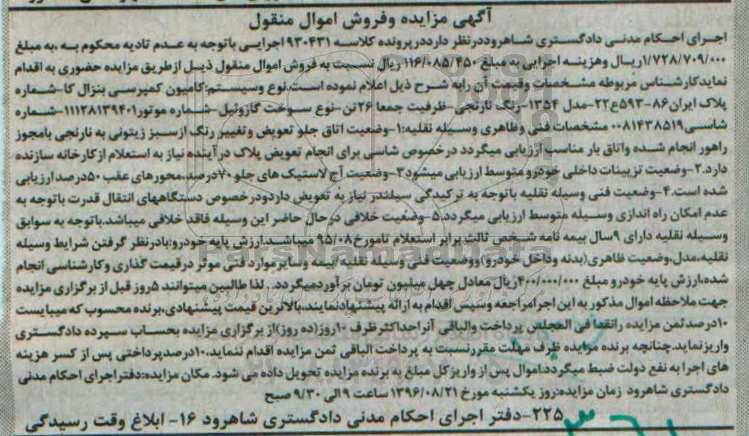 آگهی مزایده وفروش اموال منقول
اجرای احکام مدنی دادگستری شاهروددرنظر دارددرپرونده کلاسه ۹۳۰۴۳۱ اجرایی باتوجه به عدم تادیه محکوم به ،به مبلغ
۱/۷۲۸/۷۰۹/۰۰۰ریال وهزینه اجرایی به مبلغ ۱۱۶/۰۸۵/۴۵۰ ریال نسبت به فروش اموال منقول ذیل ازطریق مزایده حضوری به اقدام
نمایدکارشناس مربوطه مشخصات وقیمت آن رابه شرح ذیل اعلام نموده است.نوع وسیستم:کامیون کمپرسی بنزال کا-شماره
پلاک ایران۸۶-۵۹۳ع۲۲-مدل ۱۳۵۴-رنگ نارنجی-ظرفیت جمعا ۲۶تن-نوع سوخت گازوئیل-شماره موتور۱۱۱۳۸۱۳۹۴۰۱-شماره
شاسی۰۰۸۱۴۳۸۵۱۹ مشخصات فنی وظاهری وسیله نقلیه:۱-وضعیت اتاق جلو تعویض وتغییر رنگ ازسبز زیتونی به نارنجی بامجوز
راهور انجام شده واتاق بار مناسب ارزیابی میگردد درخصوص شاسی برای انجام تعویض پلاک درآینده نیاز به استعلام ازکارخانه سازنده
دارد.۲-وضعیت تزیینات داخلی خودرو متوسط ارزیابی میشود۳-وضعیت آج لاستیک های جلو ۷۰درصد،محورهای عقب ۵۰درصدارزیابی
شده است.۴-وضعیت فنی وسیله نقلیه باتوجه به ترکیدگی سیلندر نیاز به تعویض داردودرخصوص دستگاههای انتقال قدرت باتوجه به
عدم امکان راه اندازی وسیله متوسط ارزیابی میگردد.۵-وضعیت خلافی درحال حاضر این وسیله فاقد خلافی میباشد.باتوجه به سوابق
وسیله نقلیه دارای ۹سال بیمه نامه شخص ثالث برابر استعلام تامورخ۹۵/۰۸ میباشد.ارزش پایه خودرو:بادرنظر گرفتن شرایط وسیله
نقلیه،مدل،وضعیت ظاهری(بدنه وداخل خودرو)ووضعیت فنی وسیله نقلیه،بیمه وسایرموارد فنی موثر درقیمت گذاری وکارشناسی انجام
شده،ارزش پایه خودرو مبلغ ۴۰۰/۰۰۰/۰۰۰ریال معادل چهل میلیون تومان برآوردمیگردد. . لذا طالبین میتوانند ۵روز قبل از برگزاری مزایده
جهت ملاحظه اموال مذکور به این اجرامراجعه وسپس اقدام به ارائه پیشنهادنمایند.بالاترین قیمت پیشنهادی،برنده محسوب که میبایست
۱۰درصدثمن مزایده راتقدا فی المجلس پرداخت والباقی آنراحداکثرظرف ۱۰روز(ده روز)از برگزاری مزایده بحساب سپرده دادگستری
واریزنماید.چنانچه برنده مزایده ظرف مهلت مقررنسبت به پرداخت الباقی ثمن مزایده اقدام ننماید،۱۰درصدپرداختی پس از کسر هزینه
های اجرا به نفع دولت ضبط میگردد.اموال پس از واریزکل مبلغ به برنده مزایده تحویل داده می شود. مکان مزایده:دفتراجرای احکام مدنی
دادگستری شاهرود زمان مزایده:روز یکشنبه مورخ ۱۳۹۶/۰۸/۲۱ ساعت ۹ الی ۹/۳۰ صبح
۲۲۵-دفتر اجرای احکام مدنی دادگستری شاهرود ۱۶- ابلاغ وقت رسیدگی